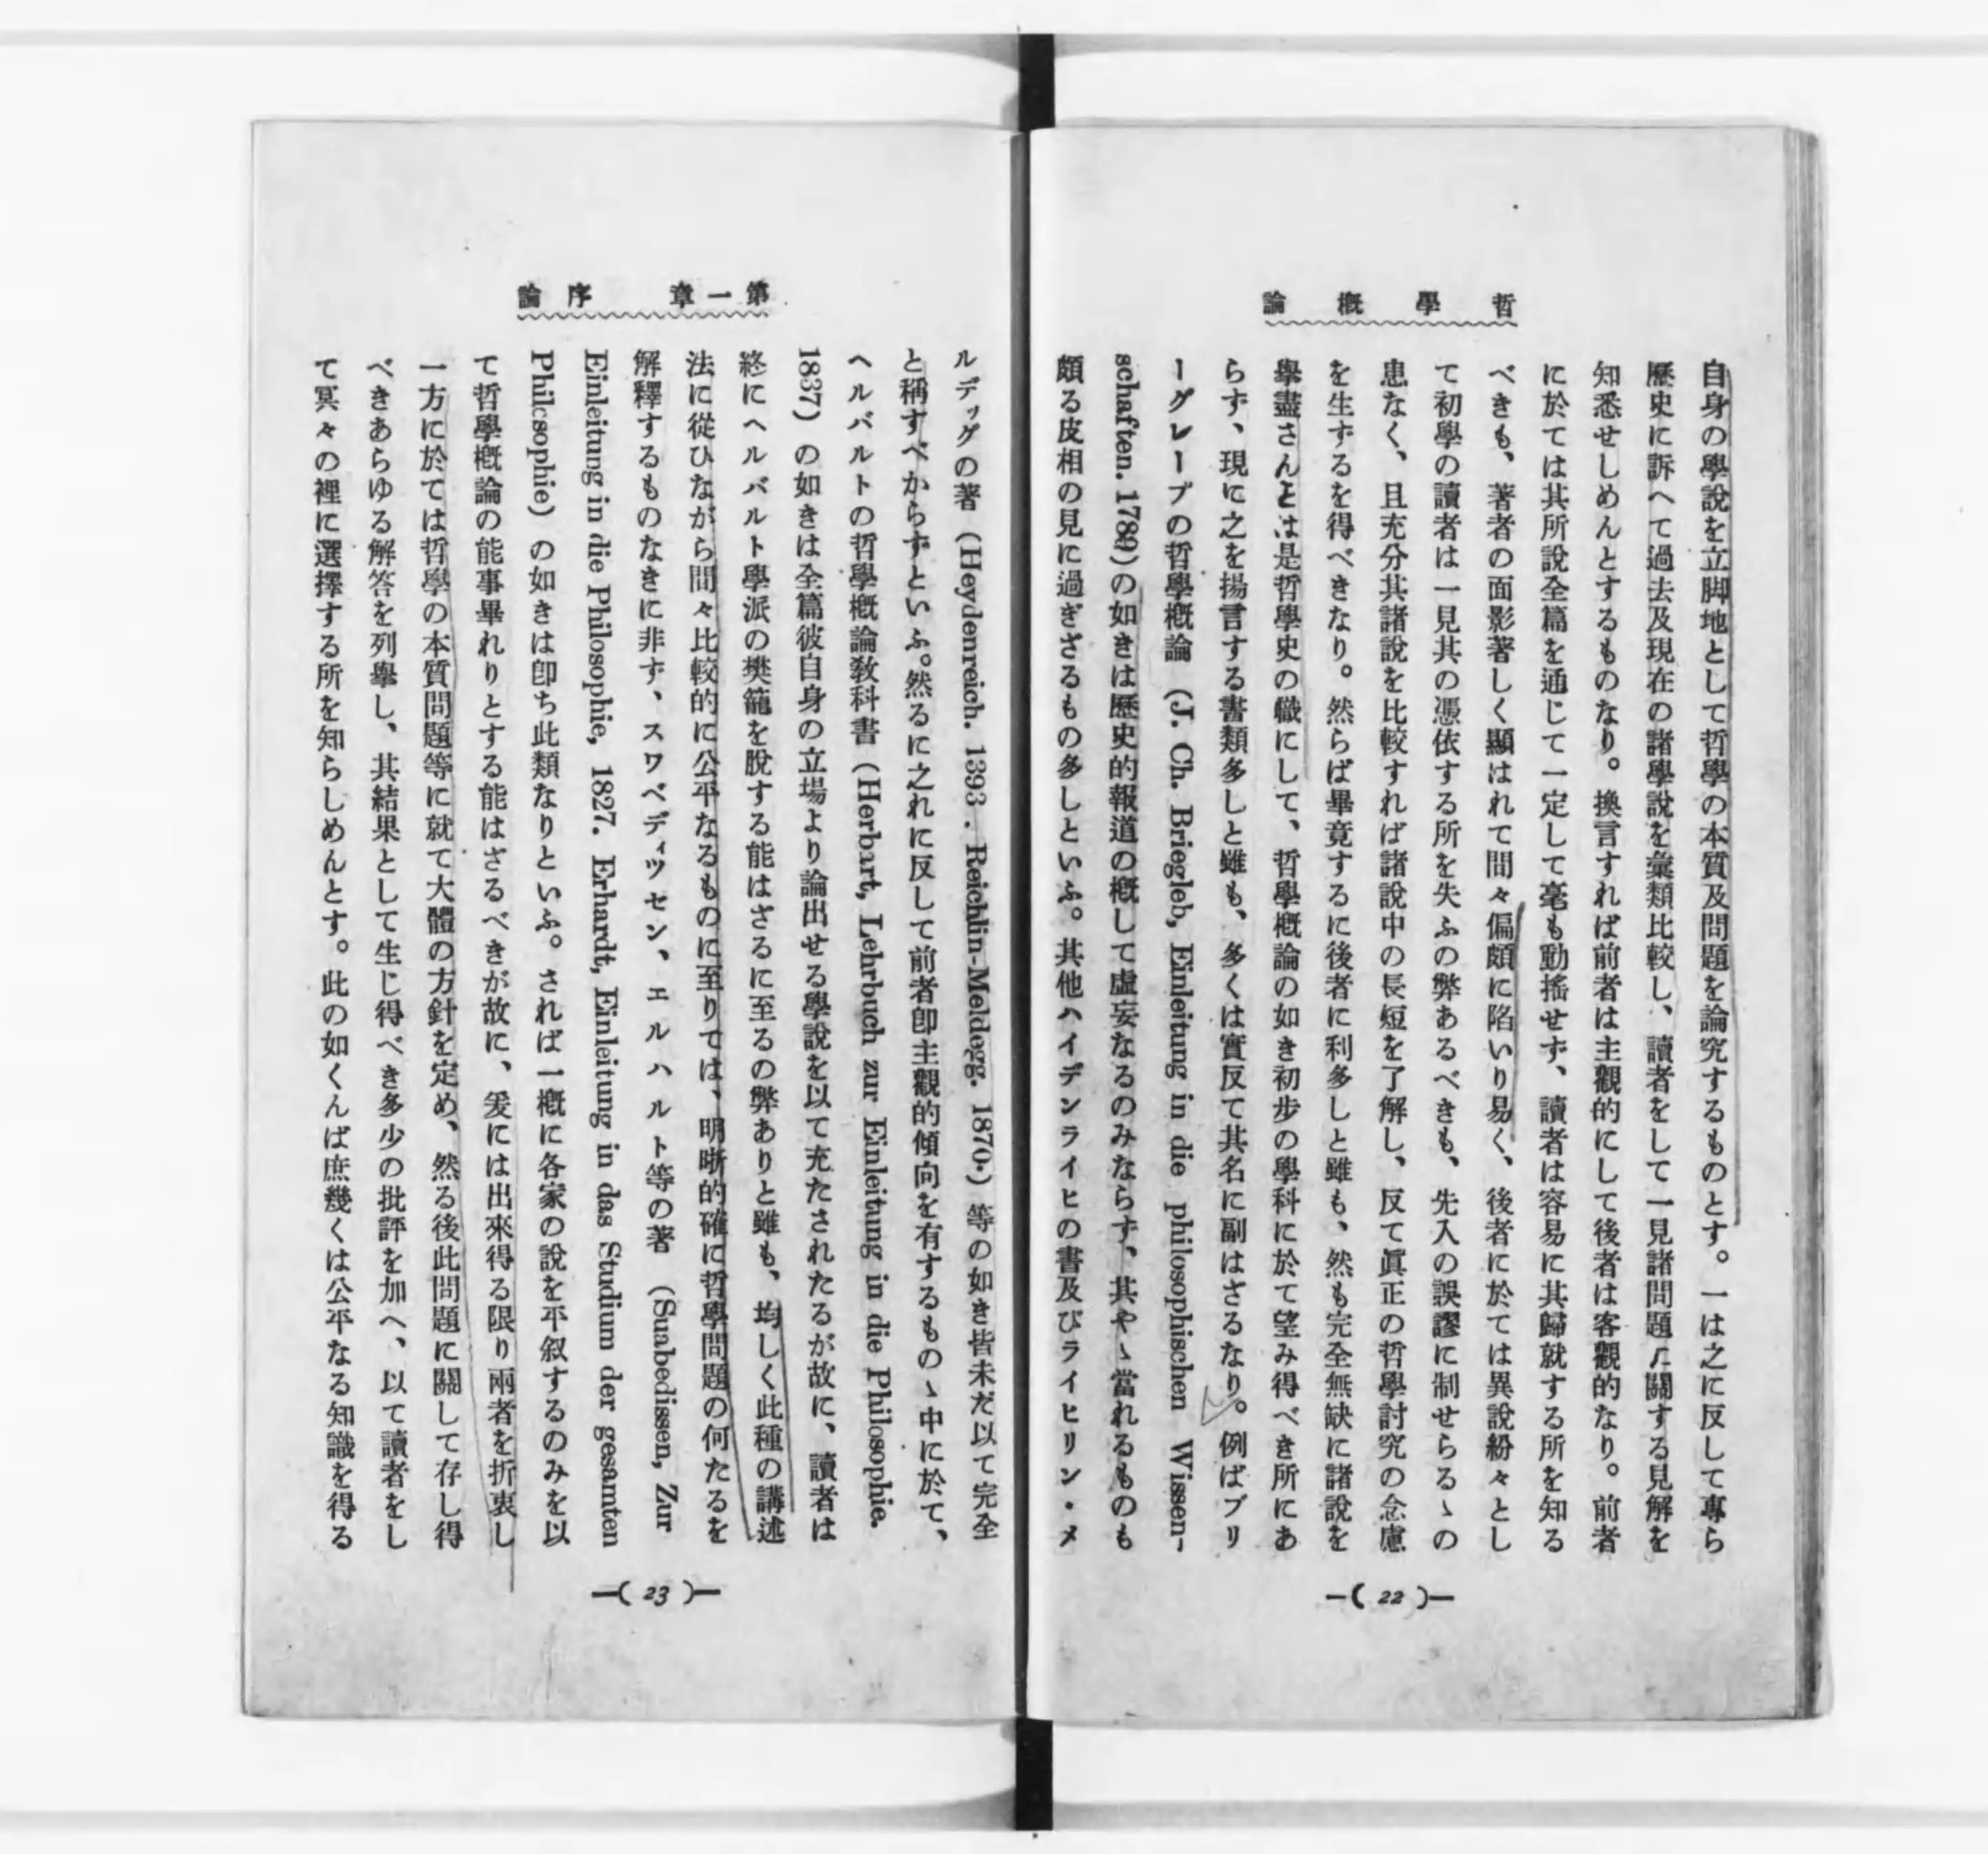 哲學概論
自身の學說を立脚地として哲學の本質及問題を論究するものとす。一は之に反して專ら
歷史に訴へて過去及現在の諸學說を彙類比較し、讀者をして一見諸問題に關する見解を
知悉せしめんとするものなり。換言すれば前者は主觀的にして後者は客觀的なり。前者
に於ては其所說全篇を通じて一定して毫も動搖せず、讀者は容易に其歸就する所を知る
べきも、著者の面影著しく顯はれて間々偏頗に陷いり易く、後者に於ては異說紛々とし
て初學の讀者は一見其の憑依する所を失ふの弊あるべきも、先入の誤謬に制せらるゝの
患なく、且充分其諸說を比較すれば諸說中の長短を了解し、反て眞正の哲學討究の念慮
を生ずるを得べきなり。然らば畢竟するに後者に利多しと雖も、然も完全無缺に諸說を
擧盡さんとは是哲學史の職にして、哲學概論の如き初步の學科に於て望み得べき所にあ
らず、現に之を揚言する書類多しと雖も、多くは實反て其名に副はさるなり。例ばブリ
ーグレーブの哲學概論 (J. Ch. Briegleb, Einleitung in die philosophischen Wissen-
schaften. 1789)の如きは歷史的報道の概して虛妄なるのみならず、其やゝ當れるものも
頗る皮相の見に過ぎざるもの多しといふ。其他ハイデンライヒの書及びライヒリン・メ
—( 22 )—
第一章 序論
ルデッグの著 (Heydenreich. 1393. Reichlin-Meldegg. 1870.) 等の如き皆未だ以て完全
と稱すべからずといふ。然るに之れに反して前者卽主觀的傾向を有するものゝ中に於て、
ヘルバルトの哲學概論敎科書 (Herbart, Lehrbuch zur Einleitung in die Philosophie.
1837) の如きは全篇彼自身の立場より論出せる學說を以て充たされたるが故に、讀者は
終にヘルバルト學派の樊籠を脫する能はさるに至るの弊ありと雖も、均しく此種の講述
法に從ひながら間々比較的に公平なるものに至りては、明晰的確に哲學問題の何たるを
解釋するものなきに非ず、スワベディツセン、エルハルト等の著 (Suabedissen, Zur
Einleitung in die Philosophie, 1827. Erhardt, Einleitung in das Studium der gesamten
Philcsophie) の如きは卽ち此類なりといふ。されば一概に各家の說を平叙するのみを以
て哲學概論の能事畢れりとする能はざるべきが故に、爰には出來得る限り兩者を折衷し
一方に於ては哲學の本質問題等に就て大體の方針を定め、然る後此問題に關して存し得
べきあらゆる解答を列擧し、其結果として生じ得べき多少の批評を加へ、以て讀者をし
て冥々の裡に選擇する所を知らしめんとす。此の如くんば庶幾くは公平なる知識を得る
—( 23 )—